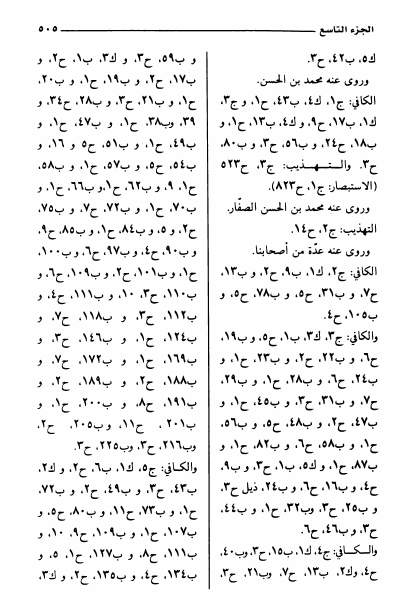 الجزء التاسع ٥٠٥
ك٥، ب٤٢، ح٣.
وروى عنه محمد بن الحسن.
الكافي: ج١، ك٤، ب٤٣، ح١، و ج٣،
ك١، ب١٧، ح٩، و ك٤، ب١٣، ح١، و
ب١٨، ح٢٤، و ب٥٦، ح٣، و ب٨٠،
ح٣. والتهذيب: ج٣، ح٥٢٣
(الاستبصار: ج١، ح٨٢٣).
وروى عنه محمد بن الحسن الصفّار.
التهذيب: ج٢، ح١٤.
وروى عنه عدّة من أصحابنا.
الكافي: ج٢، ك١، ب٩، ح٢، و ب١٣،
ح٧، و ب٣١، ح٥، و ب٧٨، ح٥، و
ب١٠٥، ح٤.
والكافي: ج٣، ك٣، ب١، ح٥، و ب١٩،
ح٦، و ب٢٢، ح٢، و ب٢٣، ح١، و
ب٢٤، ح٦، و ب٢٨، ح١، و ب٢٩،
ح٧، و ب٣١، ح٣، و ب٤٥، ح١، و
ب٤٧، ح٢، و ب٤٨، ح٥، و ب٥٦،
ح١، و ب٥٨، ح٦، و ب٨٢، ح١، و
ب٨٧، ح١، و ك٥، ب١، ح٣، و ب٩،
ح٤، و ب١٦، ح٦، و ب٢٤، ذيل ح٣،
و ب٢٥، ح٣، وب٣٢، ح١، و ب٤٤،
ح٣، و ب٤٦، ح٦.
والكافي: ج٤، ك١، ب١٥، ح٣، وب٤٠،
ح٤، وك٢، ب١٣، ح٧، وب٢١، ح٣،
و ب٥٩، ح٣، و ك٣، ب١، ح٢، و
ب١٧، ح٢، و ب١٩، ح١، و ب٢٠،
ح١، و ب٢١، ح٣، و ب٢٨، ح٣٤، و
٣٩، وب٣٨، ح١، و ب٤٧، ح١، و
ب٤٩، ح١، و ب٥١، ح٥ و ١٦، و
ب٥٤، ح٥، و ب٥٧، ح١، و ب٥٨،
ح١، ٩، و ب٦٢، ح١،و ب٦٦، ح١، و
ب٧٠، ح١، و ب٧٢، ح٧، و ب٧٥،
ح٢، و ٥، و ب٨٤، ح١، و ب٨٥، ح٩،
و ب٩٠، ح٤، و ب٩٧، ح٦، و ب١٠٠،
ح١، و ب١٠١، ح٢، و ب١٠٩، ح٦، و
ب١١٠، ح٣، ١٠، و ب١١١، ح٤، و
ب١١٢، ح٣، و ب١١٨، ح٧، و
ب١٢٤، ح١، و ب١٤٦، ح٣، و
ب١٦٩، ح١، و ب١٧٢، ح٧، و
ب١٨٨، ح٢، و ب١٨٩، ح٢، و
ب١٩١، ح٨، و ب٢٠٠، ح١، و
ب٢٠١، ح١١، و ب٢٠٥، ح٢،
وب٢١٦، ح٣، وب٢٢٥، ح٣.
والكافي: ج٥، ك١، ب٦، ح٢، و ك٢،
ب٤٣، ح٣، و ب٤٩، ح٢، و ب٧٢،
ح١، و ب٧٣، ح١١، و ب٨٠، ح٥، و
ب١٠٧، ح١، و ب١٠٩، ح٩، ١٠، و
ب١١١، ح٨، و ب١٢٧، ح١، ٥، و
ب١٣٤، ح٤، و ب١٣٥، ح٢، و ك٣،